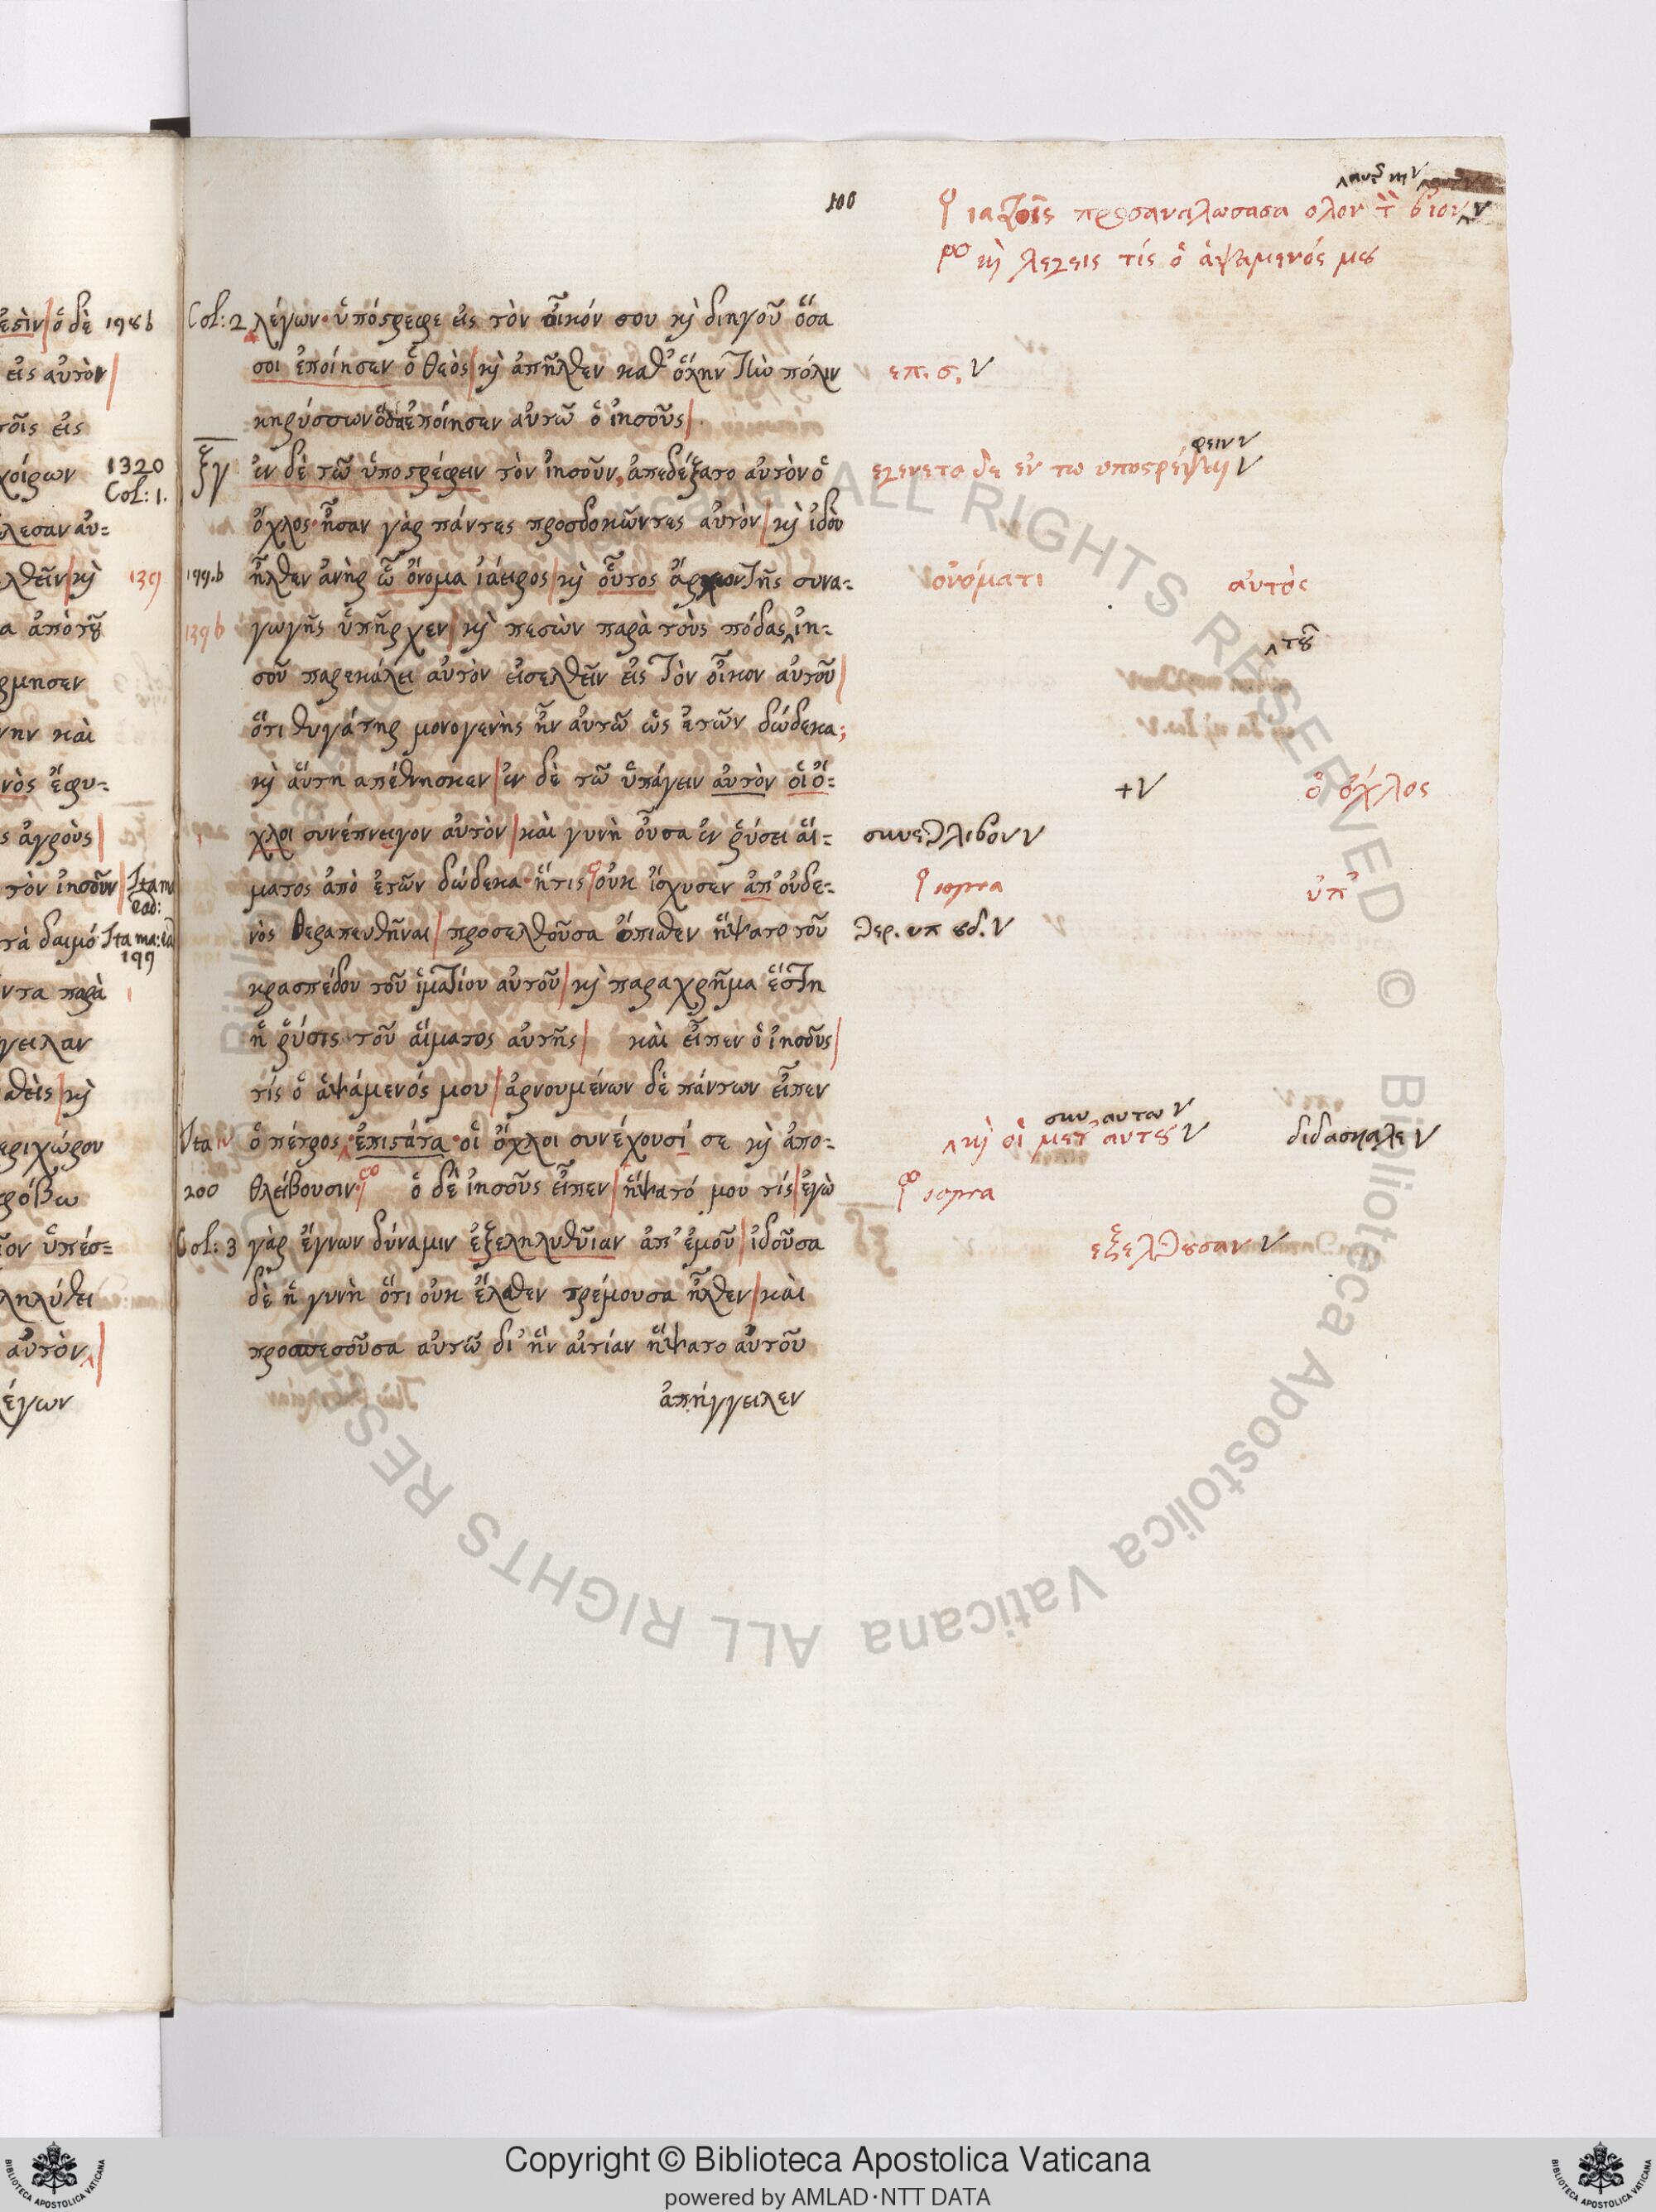 100
ἰατροῖς προσαναλωσασα ολον τ̀ βίον ν
κ̀ λεγεις τίς ὁ ἁψάμενός μου
ἐσὶν ὁ δὲ 198b
Col: 2 λέγων· ὑπόστρεφε εἰς τὸν οἶκόν σου κὶ διηγοῦ ὅσα
εἰς αὐτὸν
σοι ἐποίησεν ὁ θεὸς κὶ ἀπῆλθεν καθ' ὅλην τὴν πόλιν επ. σ, ν
τοῖς εἰς
κηρύσσων ὅσα ἐποίησεν αὐτῶ ὁ ἰησοῦς
χοίρων 1320
Col: 1.
ξγ ἐν δὲ τῶ ὑποστρέφειν τὸν ἰησοῦν, ἀπεδέξατο αὐτὸν ὁ εγενετο δε εν τω υποστρέψαι ν
φειν ν
λεσαν αὐ=
ὄχλος· ἦσαν γὰρ πάντες προσδοκῶντες αὐτὸν κὶ ἰδοὺ
λθεῖν κὶ 139
199.b ἦλθεν ἀνὴρ ὧ ὄνομα ἰάειρος κὶ οὗτος ἄρχων τῆς συνα= ὀνόματι αὐτὸς
α ἀπὸ τȣ
139b γωγῆς ὑπῆρχεν κὶ πεσὼν παρὰ τοὺς πόδας ἰη= τȣ
ρμησεν
σοῦ παρεκάλει αὐτὸν εἰσελθεῖν εἰς τὸν οἶκον αὐτοῦ
νην καὶ
ὅτι θυγάτηρ μονογενὴς ἦν αὐτῶ ὡς ἐτῶν δώδεκα;
νὸς ἔφυ=
κὶ αὕτη ἀπέθνησκεν ἐν δὲ τῶ ὑπάγειν αὐτὸν οἱ ὄ= +ν ὁ ὄχλος
ς ἀγροὺς
χλοι συνέπνειγον αὐτὸν καὶ γυνὴ οὖσα ἐν ῥύσει αἵ= συνεθλιβον ν
τὸν ἰησοῦν Ita m
ead:
ματος ἀπὸ ἐτῶν δώδεκα· ἥτις οὐκ ἴσχυσεν ἀπ' οὐδε= sopra ὑπ'
τά δαιμό Ita ma: ea
199
νὸς θεραπευθῆναι προσελθοῦσα ὄπιθεν ἥψατο τοῦ θερ. υπ ȣδ. ν
ντα παρὰ
κρασπέδου τοῦ ἱματίου αὐτοῦ κὶ παραχρῆμα ἔστη
γειλαν
ἡ ῥύσις τοῦ αἵματος αὐτῆς καὶ εἶπεν ὁ ἰησοῦς
θεὶς κὶ
τίς ὁ ἁψάμενός μου ἀρνουμένων δὲ πάντων εἶπεν
ριχώρου
Ita ὁ πέτρος· ἐπιστάτα· οἱ ὄχλοι συνέχουσί σε κὶ ἀπο= κὶ οἱ μετ' αυτȣ ν διδασκαλε ν
συν αυτω ν
ρόβω
200 θλείβουσιν· ὁ δὲ ἰησοῦς εἶπεν ἥψατό μου τίς ἐγὼ sopra
ον ὑπέσ=
Col: 3 γὰρ ἔγνων δύναμιν ἐξεληλυθῦιαν ἀπ' ἐμοῦ ἰδοῦσα εξελθȣσαν ν
ληλύθει
δὲ ἡ γυνὴ ὅτι οὐκ ἔλαθεν τρέμουσα ἦλθεν καὶ
αὐτὸν
προσπεσοῦσα αὐτῶ δι' ἣν αἰτίαν ἥψατο αὐτοῦ
έγων
ἀπήγγειλεν
ALL RIGHTS RESERVED © Biblioteca Apostolica Vaticana ALL RIGHTS RES
Copyright © Biblioteca Apostolica Vaticana
powered by AMLAD·NTT DATA
BIBLIOTECA APOSTOLICA VATICANA
BIBLIOTECA APOSTOLICA VATICANA